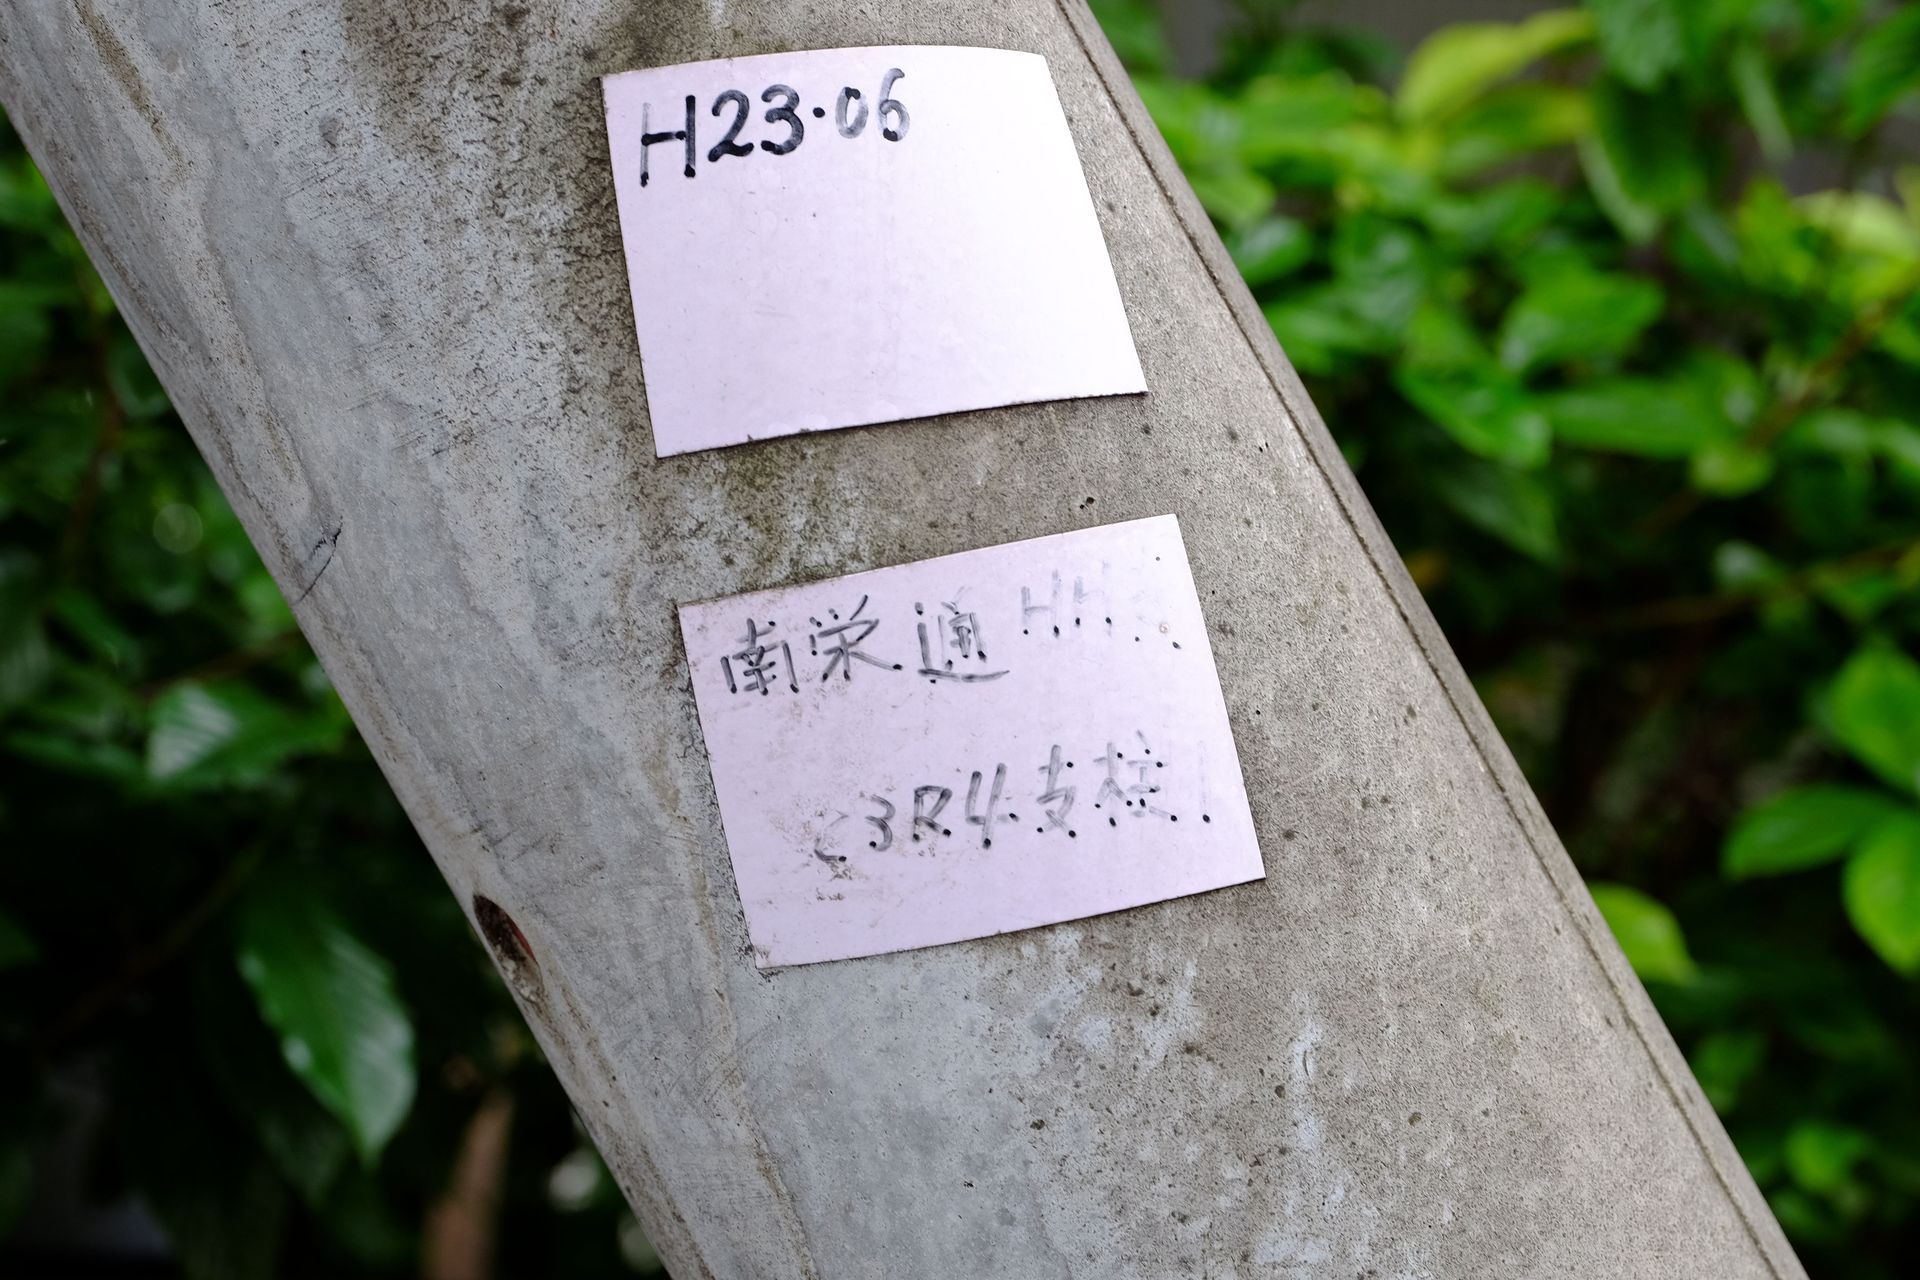 H23.06
南栄通 HH
3R4支柱1